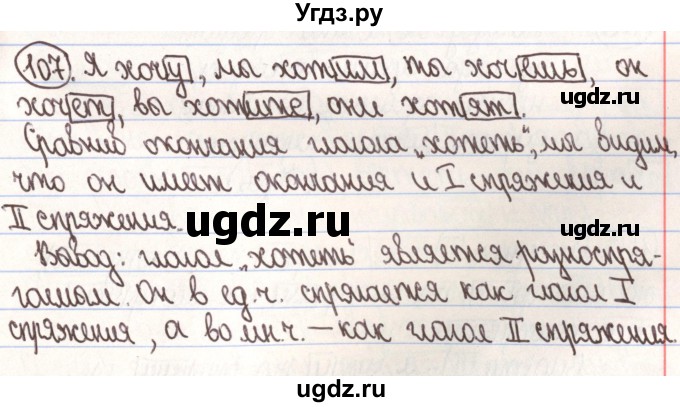 Угдз.ру
107. Я хочу, мы хотим, ты хочешь, он
хочет, вы хотите, они хотят.
Сравнив окончания глагола „хотеть", мы видим,
что он имеет окончания и I спряжения и
II спряжения.
Вывод: глагол „хотеть" является разноспря-
гаемым. Он в ед.ч. спрягается как глагол I
спряжения, а во мн.ч. – как глагол II спряжения.
ugdz.ru
ugdz.ru
ugdz.ru
ugdz.ru
ugdz.ru
ugdz.ru